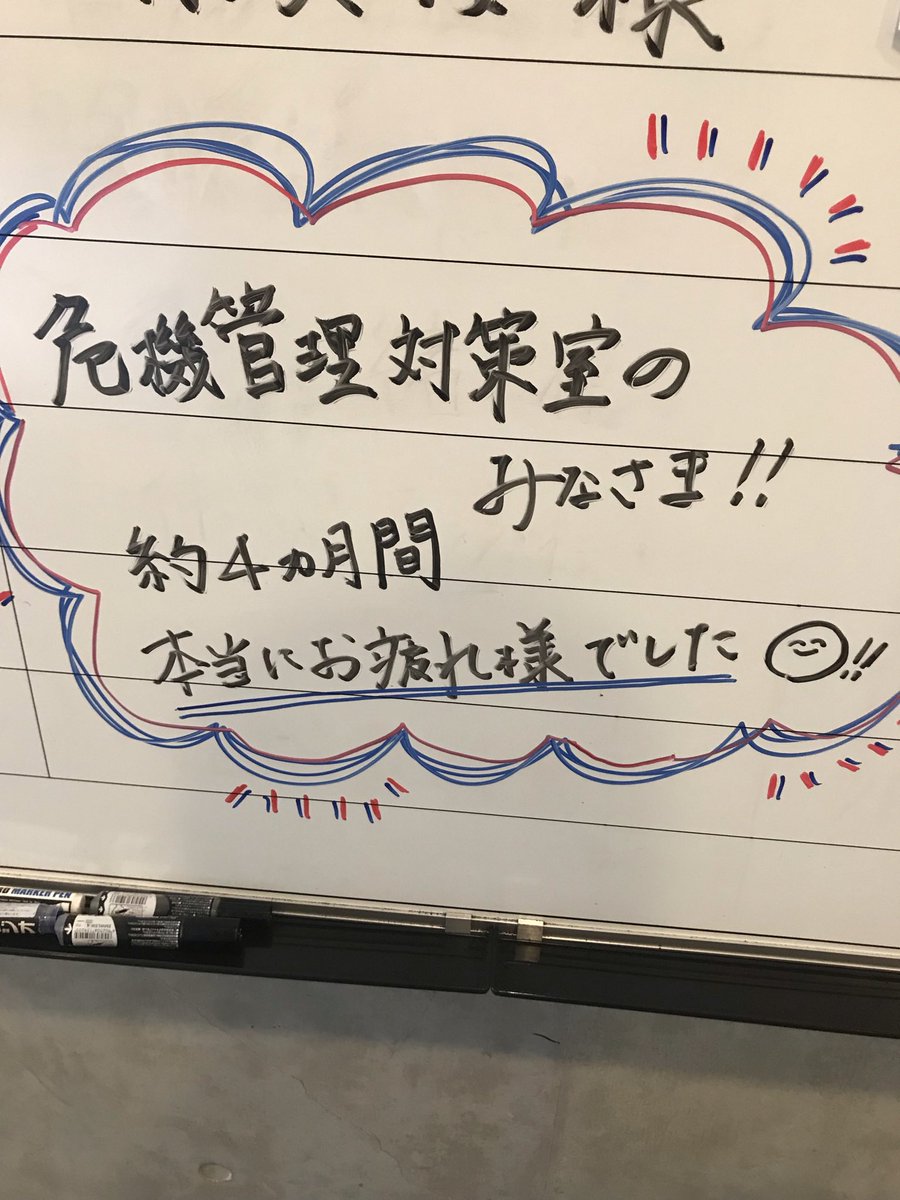 様
危機管理対策室の
みなさま!!
約4ヵ月間
本当にお疲れ様でした!!
MARKER PEN